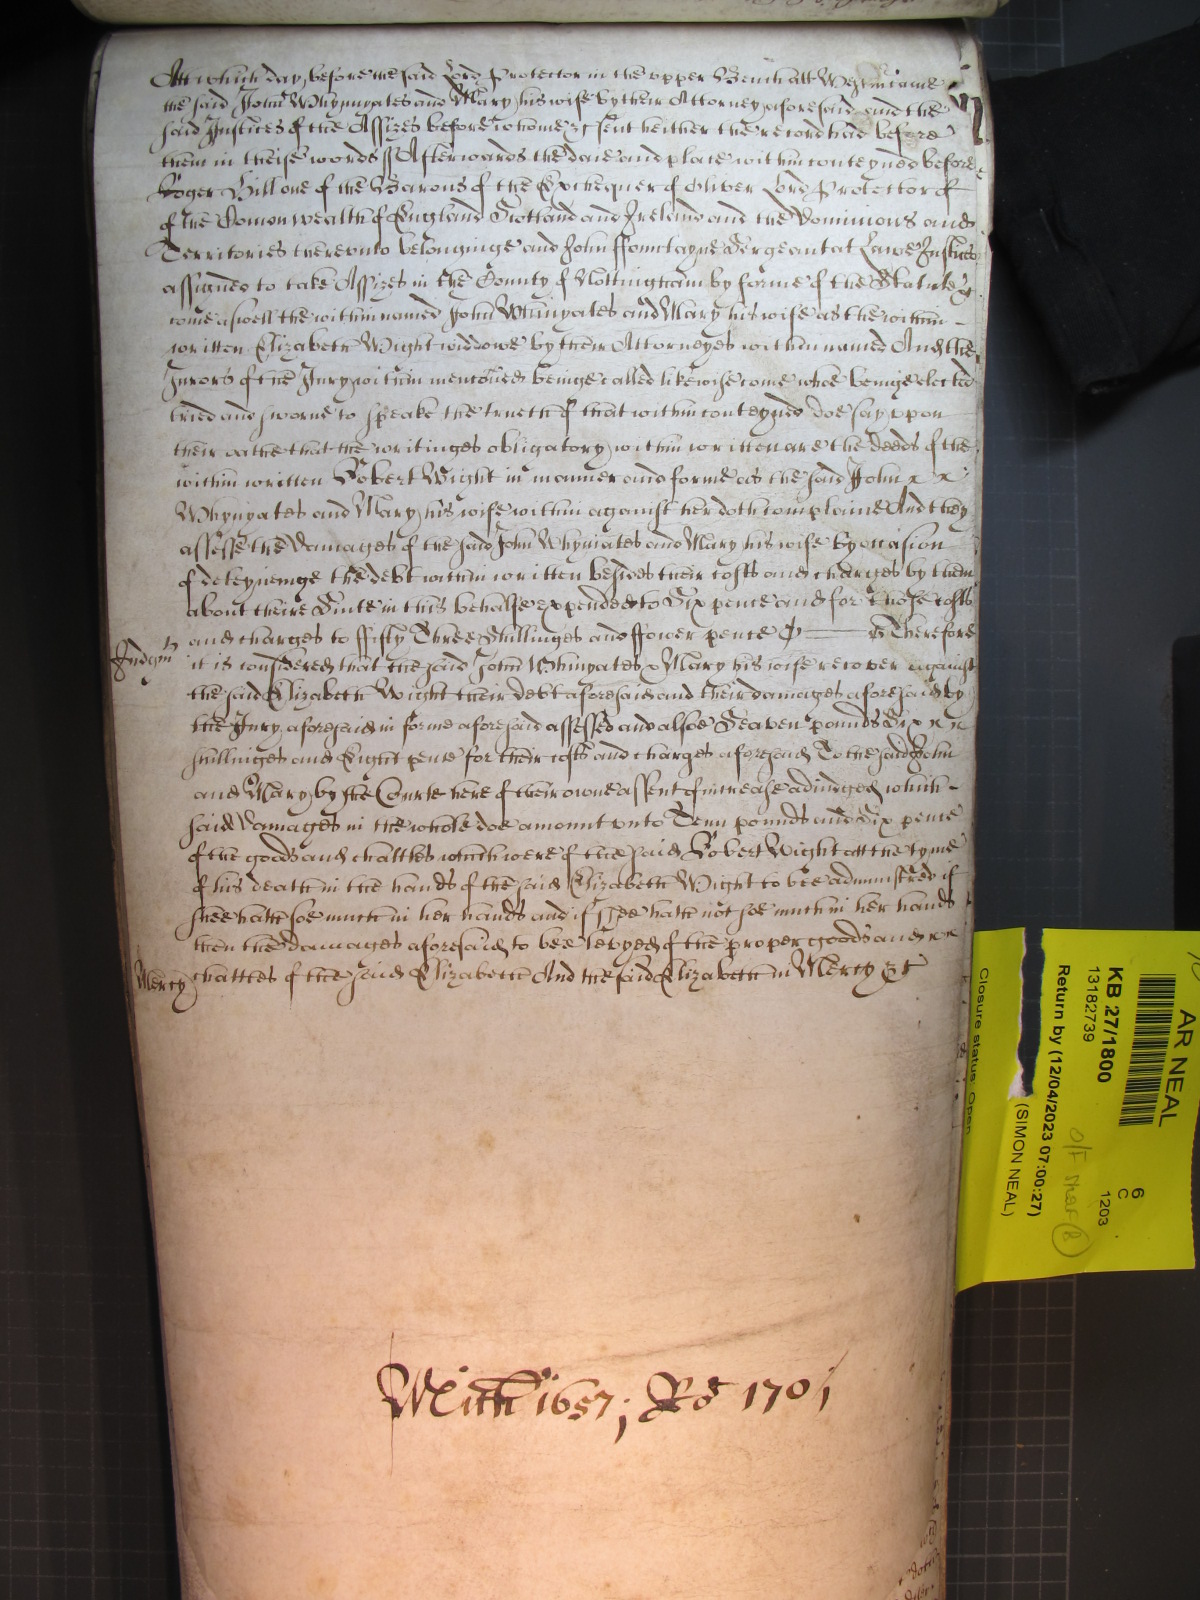 Att which day before the said Lord Protector in the upper Bench att Westm came
the said John Whynyates and Mary his wife by their Attorney aforesaid and the
said Justices of the Assizes before whome &c sent heither the record had before
them in theise words ss Afterwards the daie and place within conteyned before
Roger Hill one of the Barons of the Exchequer of Oliver Lord Protector of
of the Comonwealth of England Scotland and Ireland and the Dominions and
Territories thereunto belonginge and John ffountayne Sergeant at Lawe Justices
assigned to take Assizes in the County of Nottingham by forme of the Statute &c
come aswell the within named John Whinyates and Mary his wife as the within -
written Elizabeth Wight widdowe by their Attorneyes within named And the
Jurors of the Jury within mencioned beinge called likewise come whoe beinge elected
tried and sworne to speake the trueth of that within conteyned doe say uppon
their oathe that the writinges obligatory within written are the deeds of the
within written Robert Wight in manner and forme as the said John x x
Whynyates and Mary his wife within against her doth complaine And they
assesse the damages of the said John Whyniates and Mary his wife by occasion
of deteyneinge the debt within written besides their costs and charges by them
about theire Suite in this behalfe expended to Six pence and for those costs
and charges to ffifty Three Shillinges and ffower pence Therefore
Judgm
it is considered that the said John Whinyates & Mary his wife recover against
the said Elizabeth Wight their debt aforesaid and their damages aforesaid by
the Jury aforesaid in forme aforesaid assessed and alsoe Seaven pounds Six x x
shillinges and Eight pence for their costs and charges aforesaid To the said John
and Mary by the Courte here of their owne assent of increase adiudged which -
said damages in the whole doe amount unto Tenn pounds and Six pence
of the goods and chattles which were of the said Robert Wight att the tyme
of his death in the hands of the said Elizabeth Wight to bee administred if
shee hath soe much in her hands and if shee hath not soe much in her hands
then the damages aforesaid to bee levyed of the proper goods and x x
Mercy
chattles of the said Elizabeth And the said Elizabeth in Mercy &c
Mich 1657; Ro 1701
AR NEAL
KB 27/1800
13182739
Return by (12/04/2023 07:00:27)
(SIMON NEAL)
Closure status: Open
6
C
1203